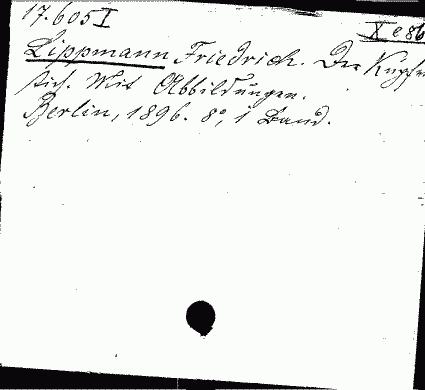 17.605 I
X e 86
Lippmann Friedrich. Der Kupfer
stich. Mit Abbildungen.
Berlin, 1896. 8°, 1 Band.